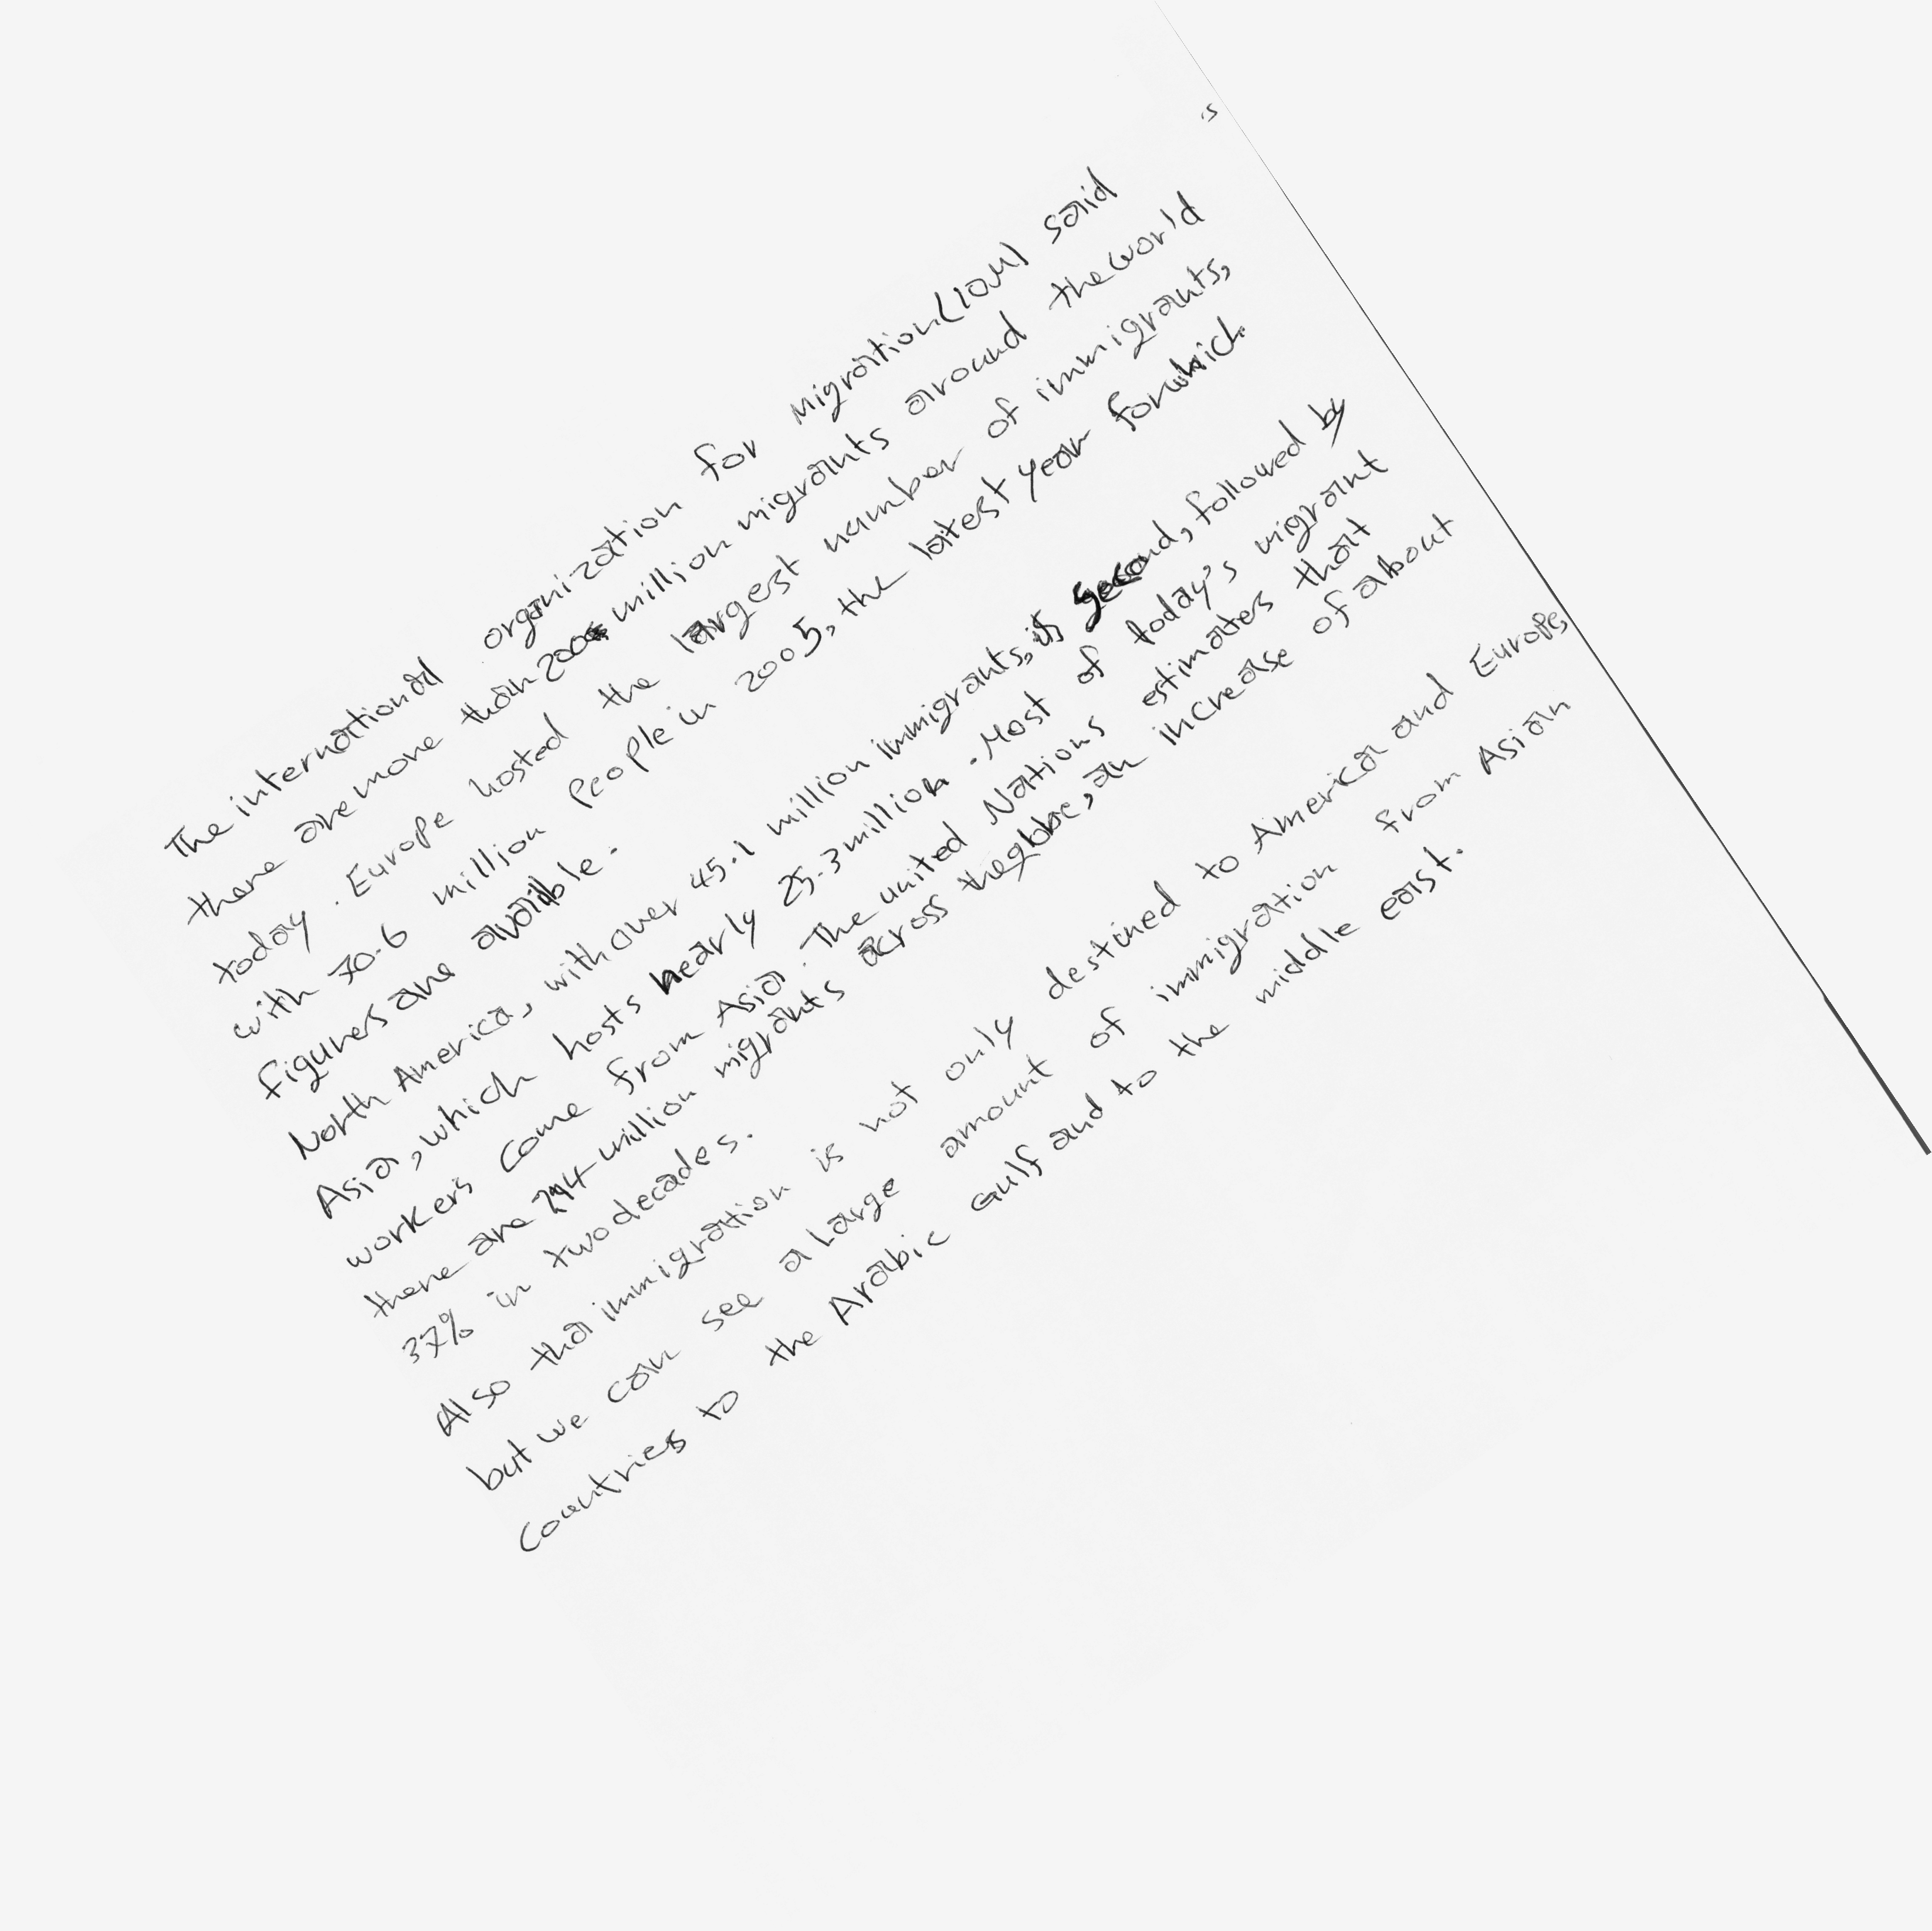 The international organization for Migration(IOM) said
there are more than 200 million migrants around the world
today. Europe hosted the largest number of immigrants,
with 70.6 million people in 2005, the latest year for which
figures are availble.
North America, with over 45.1 million immigrants, is second, followed by
Asia, which hosts nearly 25.3 million. Most of today's migrant
workers come from Asia. The united Nations estimates that
there are 214 million migrants across the globe, an increase of about
37% in two decades.
Also tha immigration is not only destined to America and Europe,
but we can see a large amount of immigration from Asian
countries to the Arabic Gulf and to the middle east.